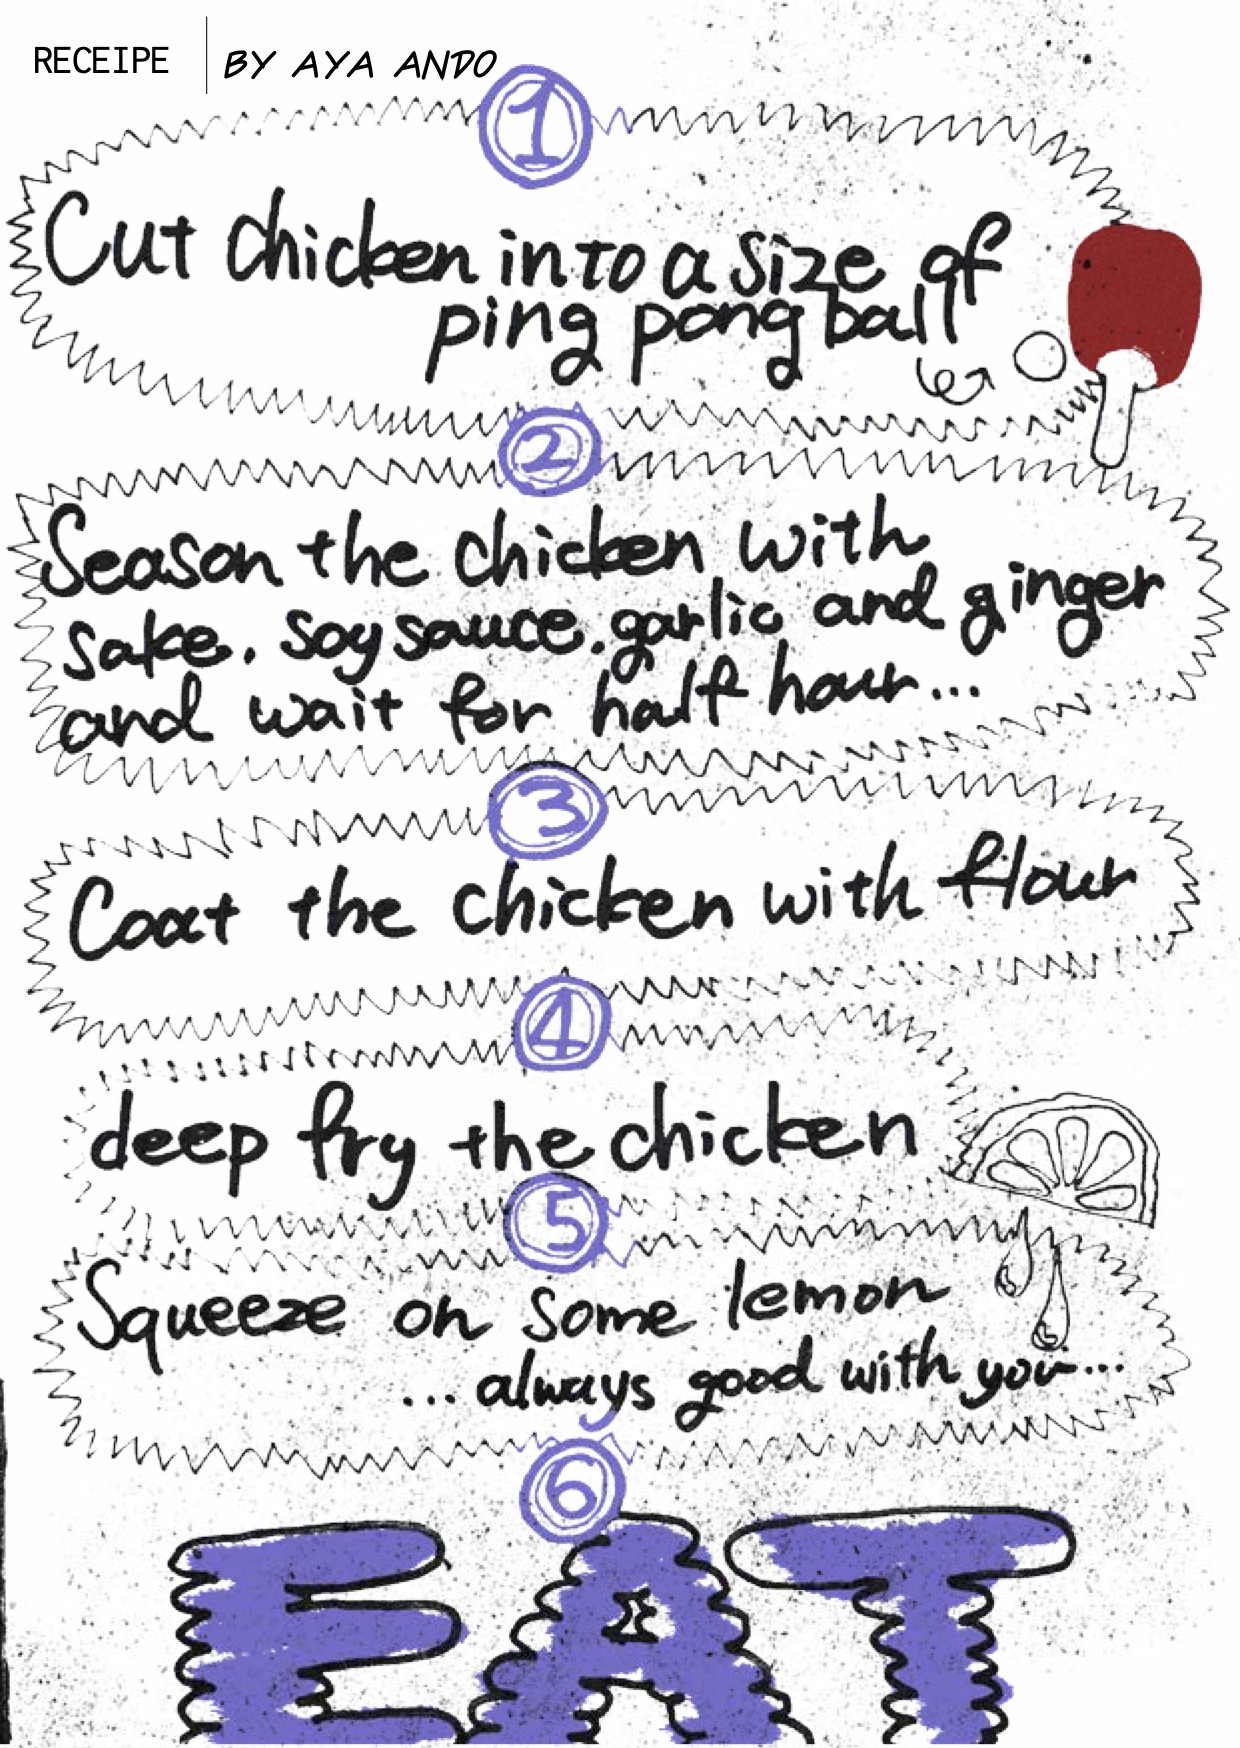 RECEIPE
BY AYA ANDO
1
Cut chicken into a size of
ping pong ball
2
Season the chicken with
sake, soy sauce, garlic and ginger
and wait for half hour...
3
Coat the chicken with flour
4
deep fry the chicken
5
Squeeze on some lemon
...always good with you...
6
EAT